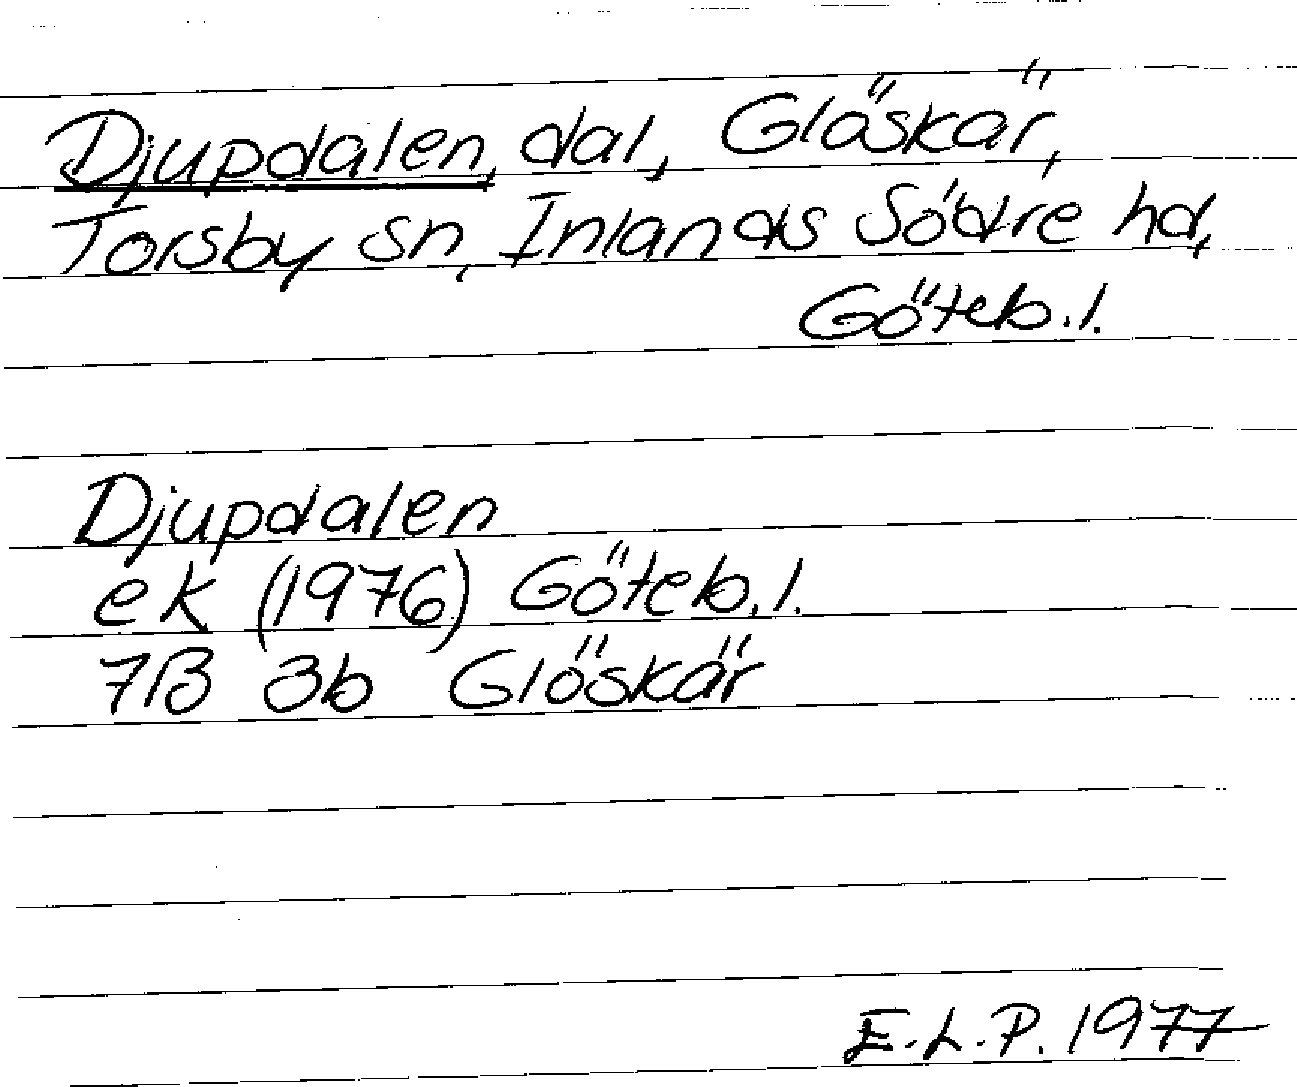 Djupdalen, dal, Glöskär,
Torsby sn, Inlands Södre hd,
Göteb. l.
Djupdalen
ek (1976) Göteb. l.
7B 3b Glöskär
E.L.P. 1977